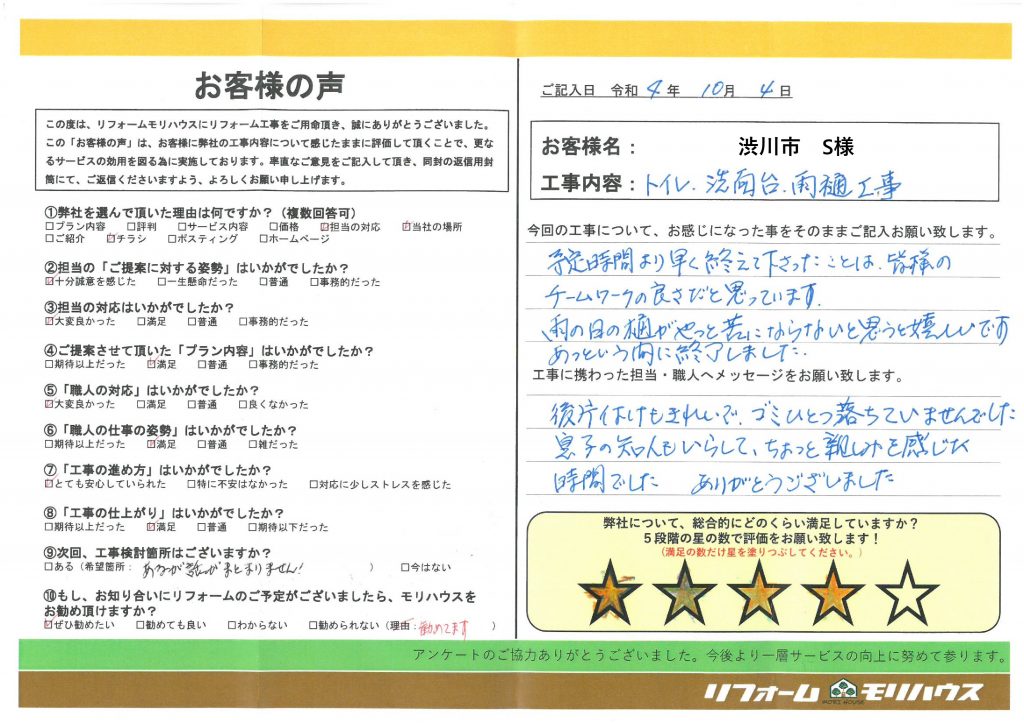 お客様の声
この度は、リフォームモリハウスにリフォーム工事をご用命頂き、誠にありがとうございました。
この「お客様の声」は、お客様に弊社の工事内容について感じたままに評価して頂くことで、更な
るサービスの効用を図る為に実施しております。率直なご意見をご記入して頂き、同封の返信用封
筒にて、ご返信くださいますよう、よろしくお願い申し上げます。
①弊社を選んで頂いた理由は何ですか？（複数回答可）
□プラン内容 □評判 □サービス内容 □価格 ☑担当の対応 ☑当社の場所
□ご紹介 ☑チラシ □ポスティング □ホームページ
②担当の「ご提案に対する姿勢」はいかがでしたか？
☑十分誠意を感じた □一生懸命だった □普通 □事務的だった
③担当の対応はいかがでしたか？
☑大変良かった □満足 □普通 □事務的だった
④ご提案させて頂いた「プラン内容」はいかがでしたか？
□期待以上だった ☑満足 □普通 □事務的だった
⑤「職人の対応」はいかがでしたか？
☑大変良かった □満足 □普通 □良くなかった
⑥「職人の仕事の姿勢」はいかがでしたか？
□期待以上だった ☑満足 □普通 □雑だった
⑦「工事の進め方」はいかがでしたか？
☑とても安心していられた □特に不安はなかった □対応に少しストレスを感じた
⑧「工事の仕上がり」はいかがでしたか？
□期待以上だった ☑満足 □普通 □期待以下だった
⑨次回、工事検討箇所はございますか？
□ある（希望箇所： あるが話がまとまりません! ） □今はない
⑩もし、お知り合いにリフォームのご予定がございましたら、モリハウスを
お勧め頂けますか？
☑ぜひ勧めたい □勧めても良い □わからない □勧められない（理由：勧めてます ）
ご記入日 令和 4 年 10 月 4 日
お客様名： 渋川市 S様
工事内容：トイレ.洗面台.雨樋工事
今回の工事について、お感じになった事をそのままご記入お願い致します。
予定時間より早く終えて下さったことは、皆様の
チームワークの良さだと思っています.
雨の日の樋がやっと苦にならないと思うと嬉しいです
あっという間に終了しました.
工事に携わった担当・職人へメッセージをお願い致します。
後片付けもきれいで、ゴミひとつ落ちていませんでした
息子の知人もいらして、ちょっと親しみを感じた
時間でした ありがとうございました
弊社について、総合的にどのくらい満足していますか？
５段階の星の数で評価をお願い致します！
（満足の数だけ星を塗りつぶしてください。）
アンケートのご協力ありがとうございました。今後より一層サービスの向上に努めて参ります。
リフォーム MORI HOUSE モリハウス